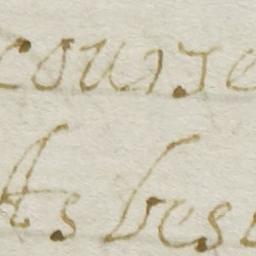 course
As bes